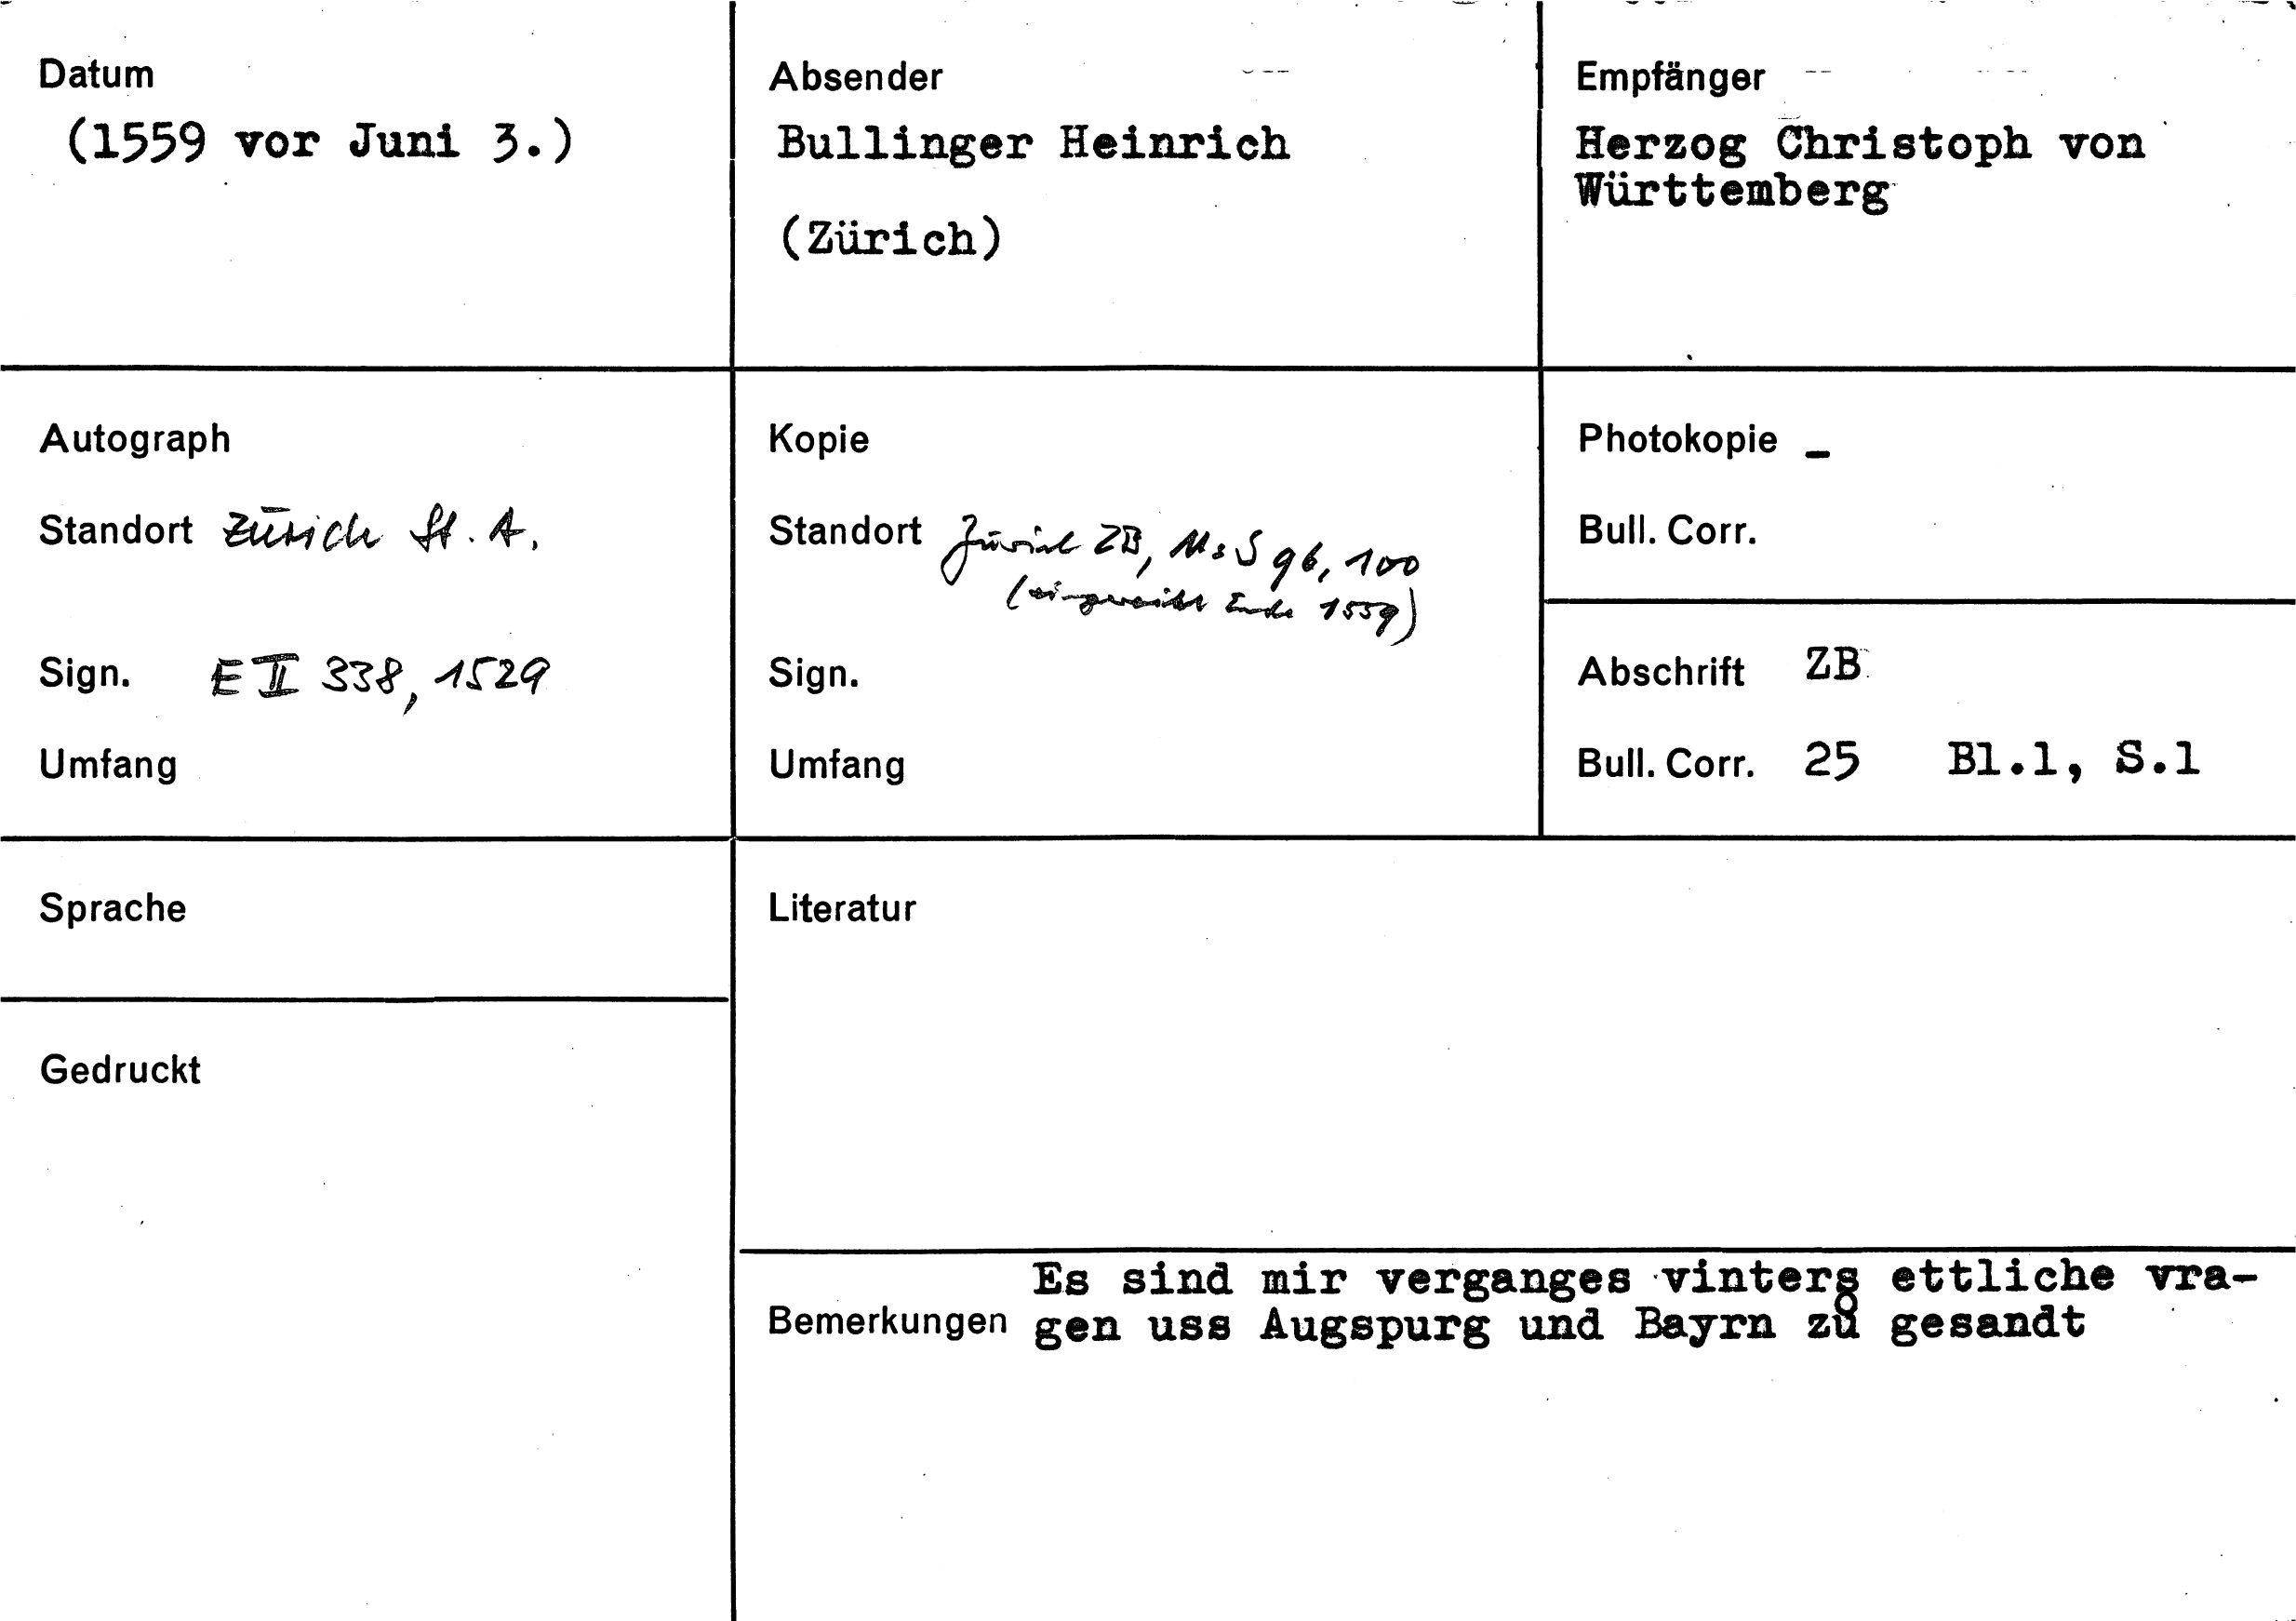 Datum
(1559 vor Juni 3.)
Absender
Bullinger Heinrich
(Zürich)
Empfänger
Herzog Christoph von
Württemberg
Autograph
Standort Zürich St. A.
Sign. E II 338, 1529
Umfang
Kopie
Standort Zürich ZB, Ms S 96, 100
(eingereiht Ende 1559)
Sign.
Umfang
Photokopie -
Bull. Corr.
Abschrift ZB
Bull. Corr. 25 Bl.1, S.1
Sprache
Gedruckt
Literatur
Es sind mir verganges vinters ettliche vra-
Bemerkungen gen uss Augspurg und Bayrn zů gesandt